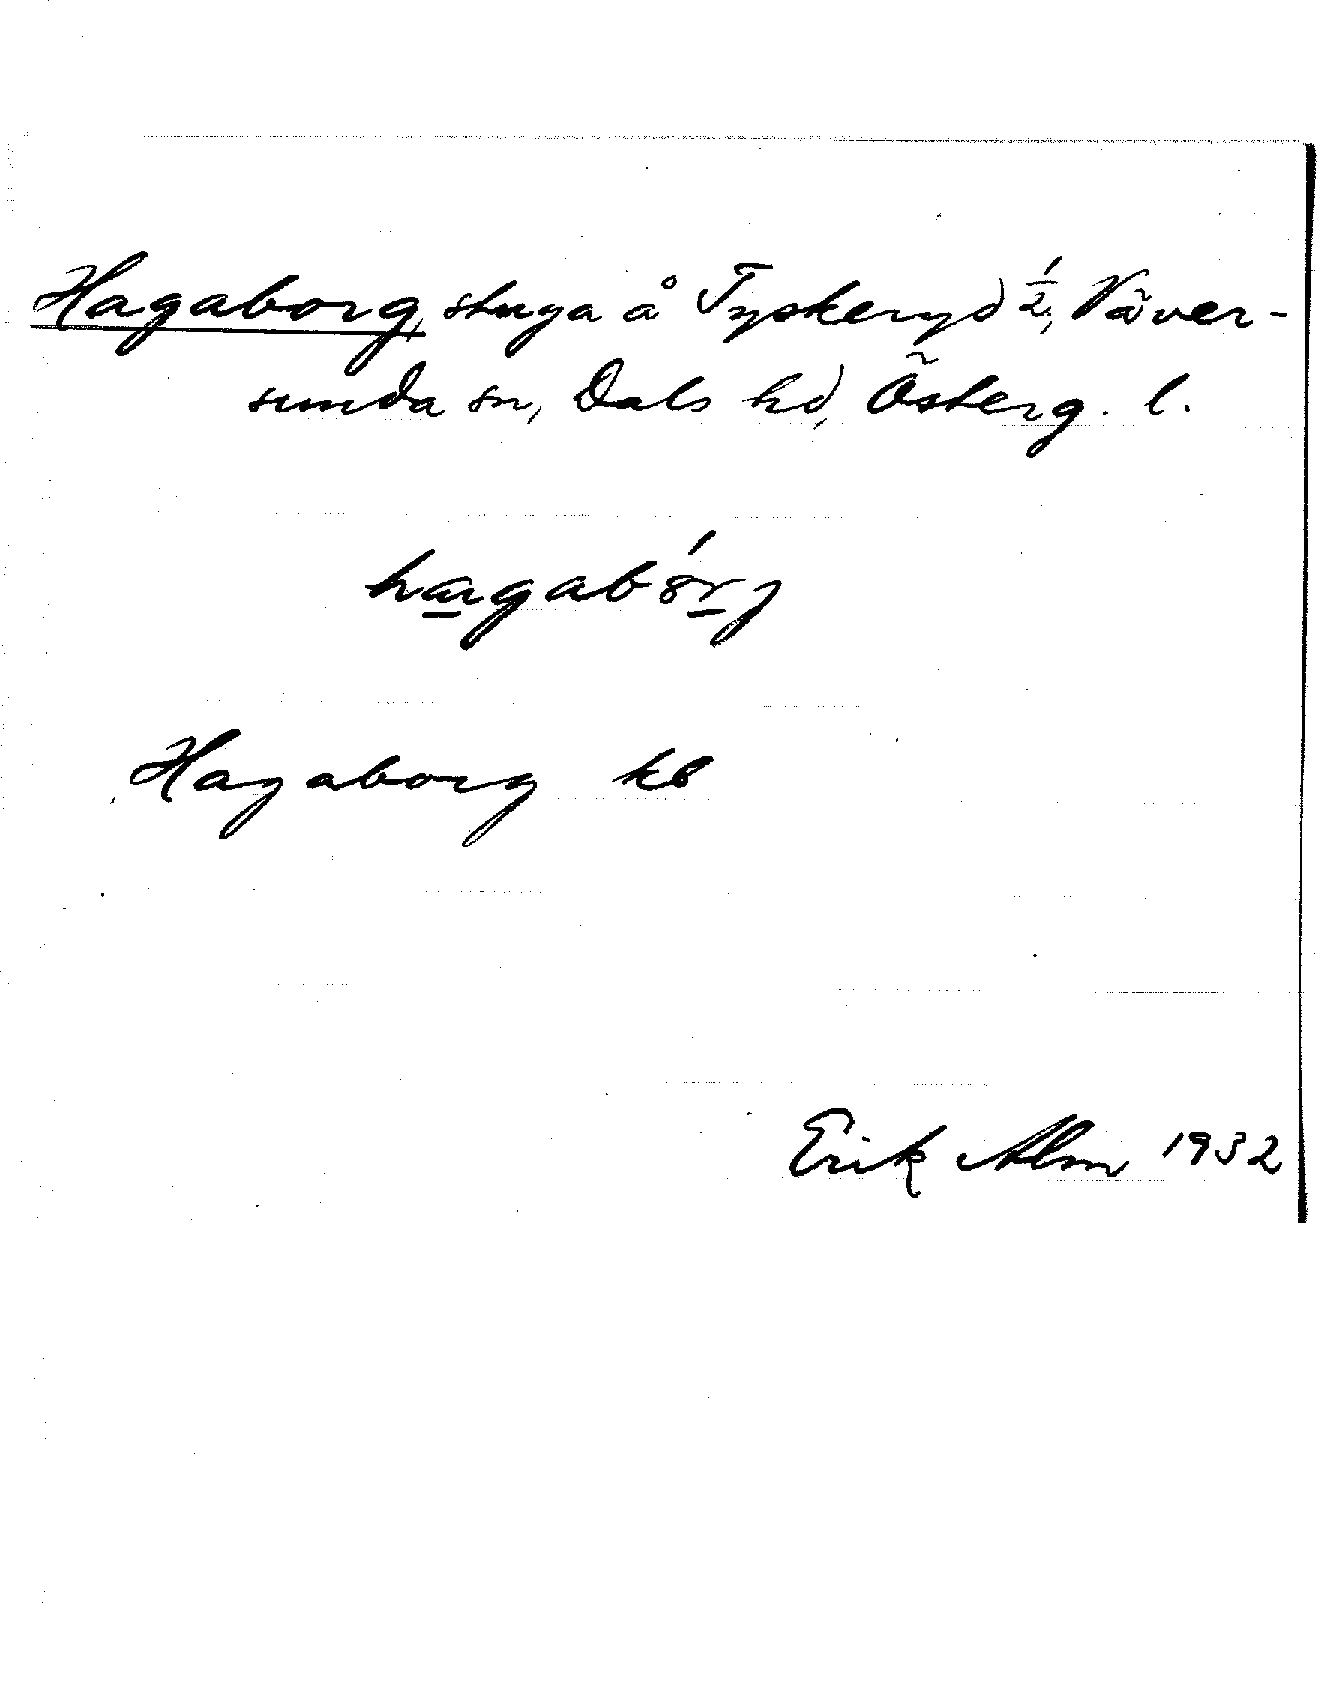 Hagaborg, stuga å Tyskeryd ½, Väver-
sunda sn, Dals hd, Österg. l.
hagabórj
Hagaborg k8
Erik Alm 1932